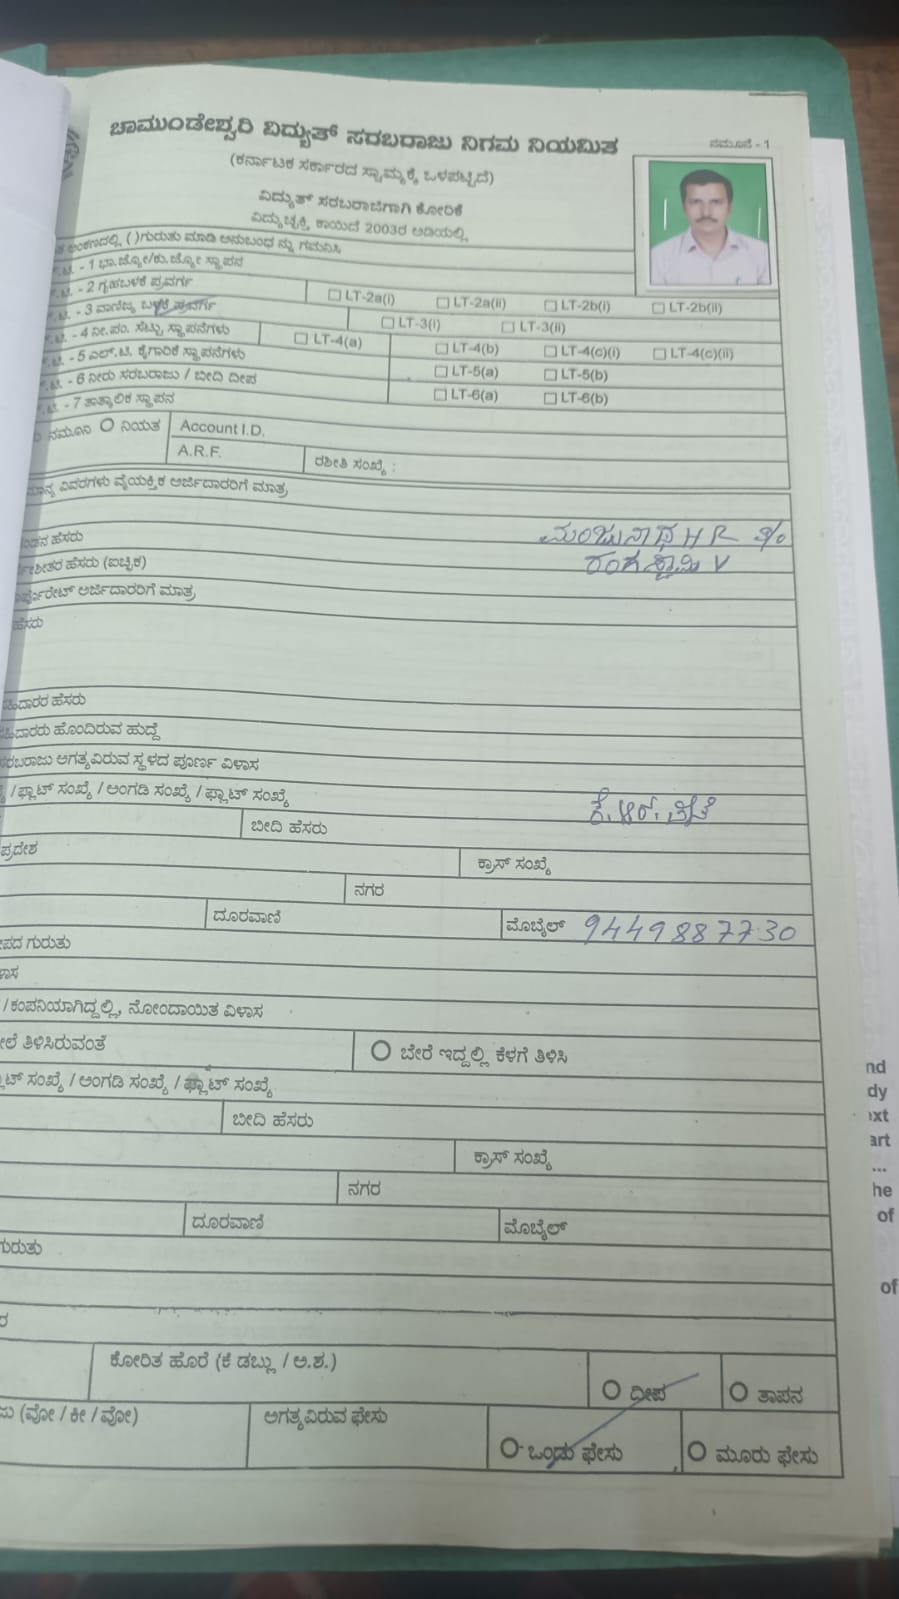 ಚಾಮುಂಡೇಶ್ವರಿ ವಿದ್ಯುತ್ ಸರಬರಾಜು ನಿಗಮ ನಿಯಮಿತ
ನಮೂನೆ - 1
(ಕರ್ನಾಟಕ ಸರ್ಕಾರದ ಸ್ವಾಮ್ಯಕ್ಕೆ ಒಳಪಟ್ಟಿದೆ)
ವಿದ್ಯುತ್ ಸರಬರಾಜಿಗಾಗಿ ಕೋರಿಕೆ
ವಿದ್ಯುಚ್ಛಕ್ತಿ ಕಾಯಿದೆ 2003ರ ಅಡಿಯಲ್ಲಿ
ಅಂಕಣದಲ್ಲಿ ( )ಗುರುತು ಮಾಡಿ ಅನುಬಂಧ ನ್ನು ಗಮನಿಸಿ
- 1 ಭಾ.ಜ್ಯೋ/ಕು.ಜ್ಯೋ ಸ್ಥಾಪನ
- 2 ಗೃಹಬಳಕೆ ಪ್ರವರ್ಗ LT-2a(i) LT-2a(ii) LT-2b(i) LT-2b(ii)
- 3 ವಾಣಿಜ್ಯ ಬಳಕೆ ಪ್ರವರ್ಗ LT-3(i) LT-3(ii)
- 4 ನೀ.ಪಂ. ಸೆಟ್ಟು ಸ್ಥಾಪನೆಗಳು LT-4(a) LT-4(b) LT-4(c)(i) LT-4(c)(ii)
- 5 ಎಲ್.ಟಿ. ಕೈಗಾರಿಕೆ ಸ್ಥಾಪನೆಗಳು LT-5(a) LT-5(b)
- 6 ನೀರು ಸರಬರಾಜು / ಬೀದಿ ದೀಪ LT-6(a) LT-6(b)
- 7 ತಾತ್ಕಾಲಿಕ ಸ್ಥಾಪನ
ನಮೂನಿ ನಿಯತ Account I.D.
A.R.F. ರಶೀತಿ ಸಂಖ್ಯೆ :
ವಿವರಗಳು ವೈಯಕ್ತಿಕ ಅರ್ಜಿದಾರರಿಗೆ ಮಾತ್ರ
ಹೆಸರು ಮಂಜುನಾಥ H R S/o
ಹೆಸರು (ಐಚ್ಛಿಕ) ರಂಗಸ್ವಾಮಿ V
ಅರ್ಜಿದಾರರಿಗೆ ಮಾತ್ರ
ಹೆಸರು
ಹೆಸರು
ಹೊಂದಿರುವ ಹುದ್ದೆ
ಸರಬರಾಜು ಅಗತ್ಯವಿರುವ ಸ್ಥಳದ ಪೂರ್ಣ ವಿಳಾಸ
/ ಫ್ಲಾಟ್ ಸಂಖ್ಯೆ / ಅಂಗಡಿ ಸಂಖ್ಯೆ / ಫ್ಲಾಟ್ ಸಂಖ್ಯೆ ಕೆ.ಆರ್.ಪೇಟೆ
ಬೀದಿ ಹೆಸರು
ಪ್ರದೇಶ ಕ್ರಾಸ್ ಸಂಖ್ಯೆ
ನಗರ
ದೂರವಾಣಿ ಮೊಬೈಲ್ 9449887730
ಗುರುತು
/ಕಂಪನಿಯಾಗಿದ್ದಲ್ಲಿ, ನೋಂದಾಯಿತ ವಿಳಾಸ
ತಿಳಿಸಿರುವಂತೆ ಬೇರೆ ಇದ್ದಲ್ಲಿ ಕೆಳಗೆ ತಿಳಿಸಿ
ಸಂಖ್ಯೆ / ಅಂಗಡಿ ಸಂಖ್ಯೆ / ಫ್ಲಾಟ್ ಸಂಖ್ಯೆ
ಬೀದಿ ಹೆಸರು
ಕ್ರಾಸ್ ಸಂಖ್ಯೆ
ನಗರ
ದೂರವಾಣಿ ಮೊಬೈಲ್
ಗುರುತು
ಕೋರಿತ ಹೊರೆ (ಕೆ ಡಬ್ಲು / ಅ.ಶ.) ದೀಪ ತಾಪನ
(ವೋ / ಕೀ / ವೋ) ಅಗತ್ಯವಿರುವ ಫೇಸು ಒಂದು ಫೇಸು ಮೂರು ಫೇಸು
of
of